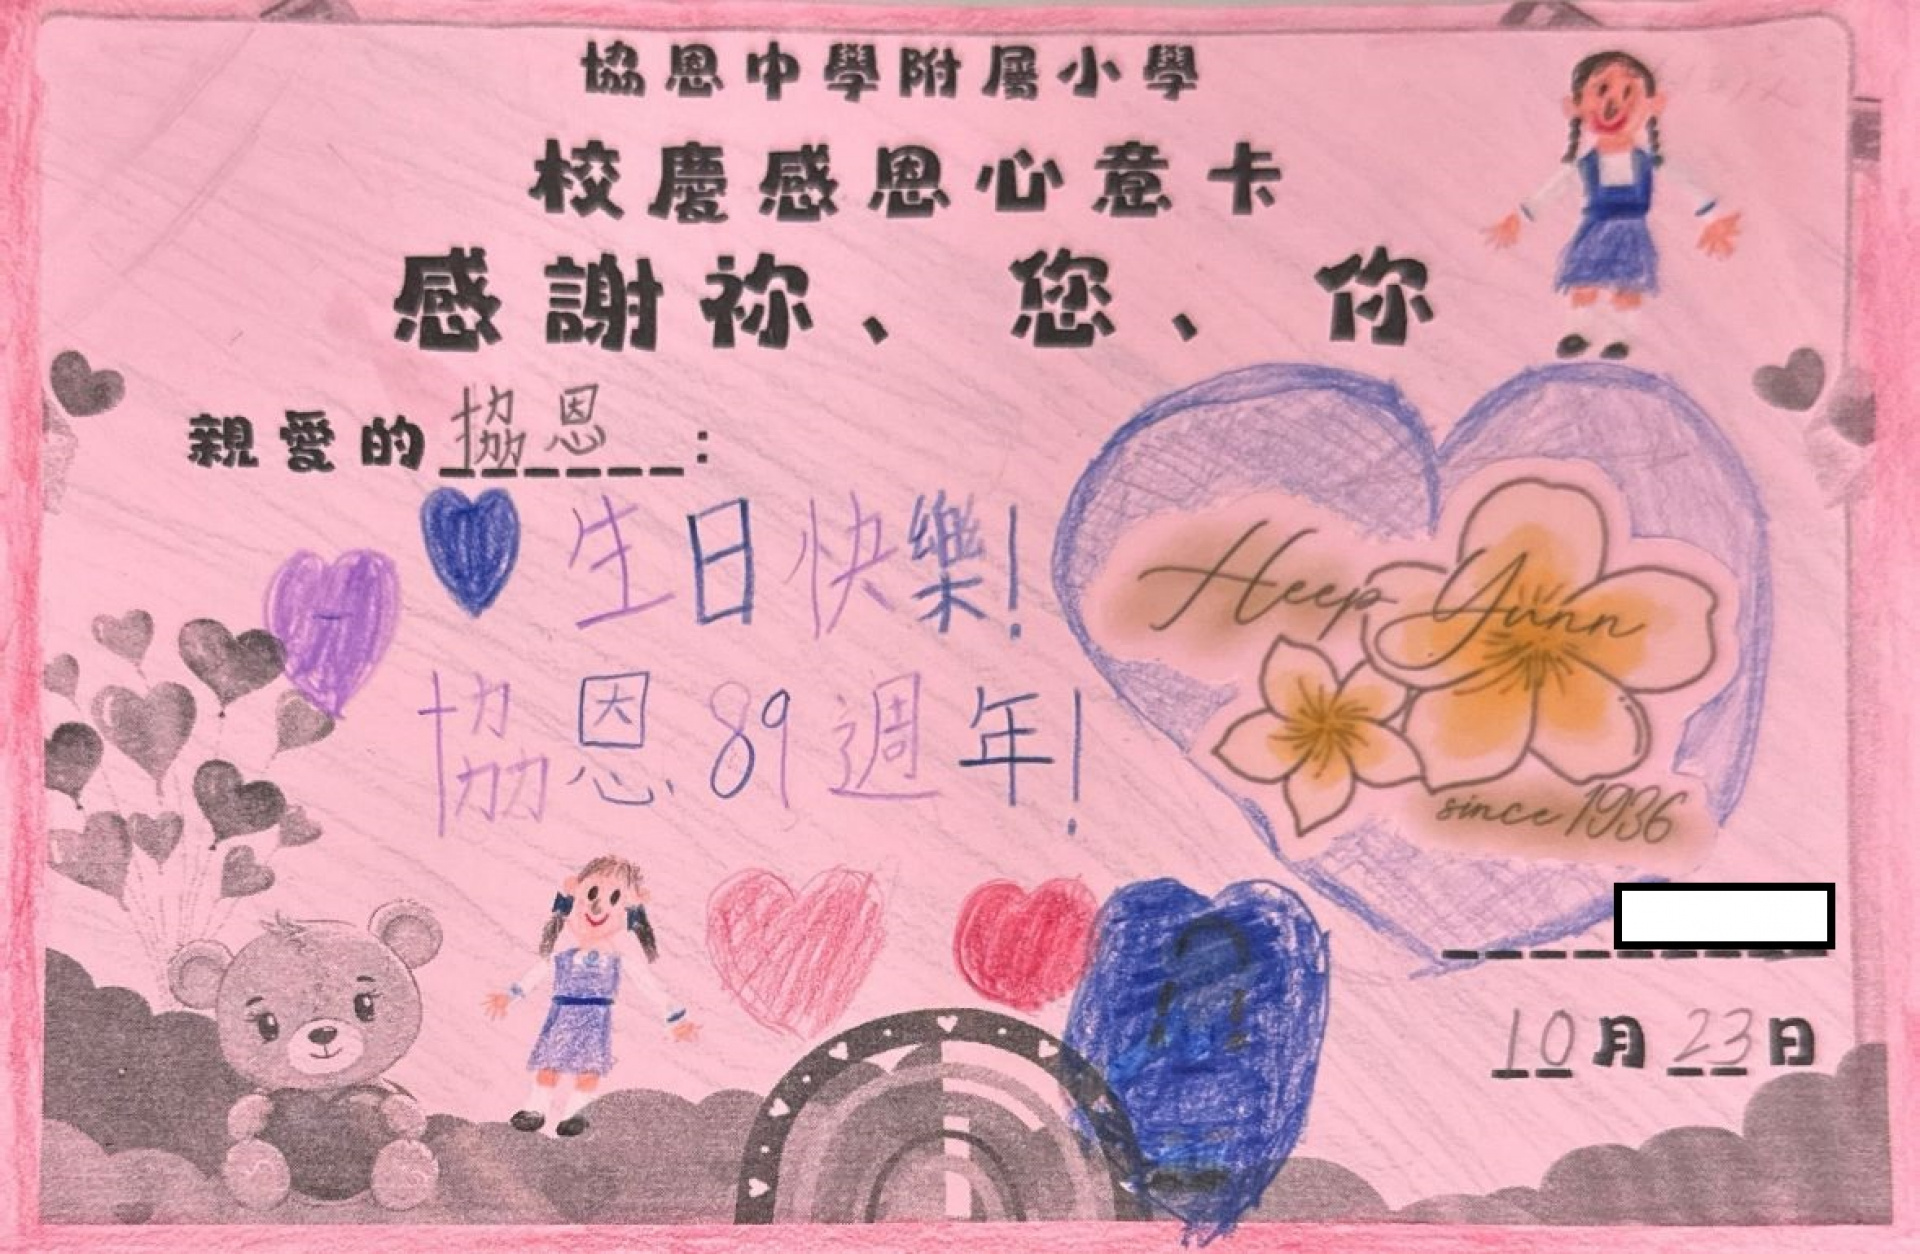 協恩中學附屬小學
校慶感恩心意卡
感謝祢、您、你
親愛的協恩:
生日快樂!
協恩89週年!
Heep Yunn
since 1936
10月23日